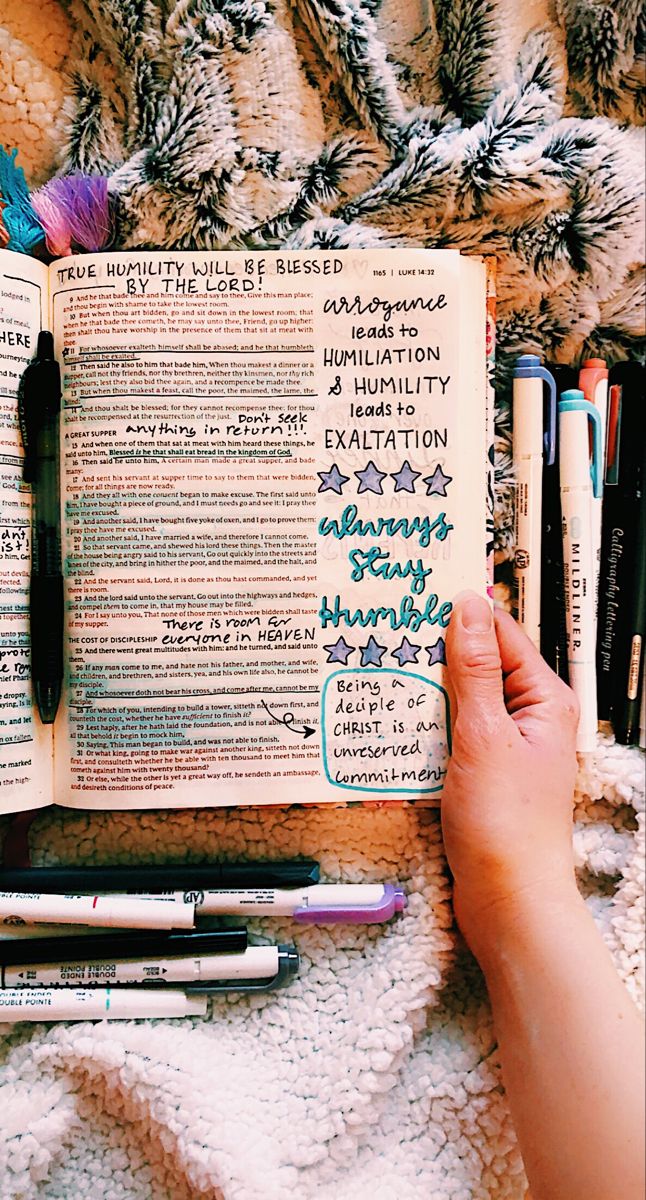 TRUE HUMILITY WILL BE BLESSED
BY THE LORD!
1165 | LUKE 14:32
9 And he that bade thee and him come and say to thee, Give this man place;
and thou begin with shame to take the lowest room.
10 But when thou art bidden, go and sit down in the lowest room; that
when he that bade thee cometh, he may say unto thee, Friend, go up higher:
then shalt thou have worship in the presence of them that sit at meat with
thee.
11 For whosoever exalteth himself shall be abased; and he that humbleth
himself shall be exalted.
12 Then said he also to him that bade him, When thou makest a dinner or a
supper, call not thy friends, nor thy brethren, neither thy kinsmen, nor thy rich
neighbours; lest they also bid thee again, and a recompence be made thee.
13 But when thou makest a feast, call the poor, the maimed, the lame, the
blind:
14 And thou shalt be blessed; for they cannot recompense thee: for thou
shalt be recompensed at the resurrection of the just.
Don't seek
anything in return!!!
A GREAT SUPPER
15 And when one of them that sat at meat with him heard these things, he
said unto him, Blessed is he that shall eat bread in the kingdom of God.
16 Then said he unto him, A certain man made a great supper, and bade
many:
17 And sent his servant at supper time to say to them that were bidden,
Come; for all things are now ready.
18 And they all with one consent began to make excuse. The first said unto
him, I have bought a piece of ground, and I must needs go and see it: I pray thee
have me excused.
19 And another said, I have bought five yoke of oxen, and I go to prove them:
I pray thee have me excused.
20 And another said, I have married a wife, and therefore I cannot come.
21 So that servant came, and shewed his lord these things. Then the master
of the house being angry said to his servant, Go out quickly into the streets and
lanes of the city, and bring in hither the poor, and the maimed, and the halt, and
the blind.
22 And the servant said, Lord, it is done as thou hast commanded, and yet
there is room.
23 And the lord said unto the servant, Go out into the highways and hedges,
and compel them to come in, that my house may be filled.
24 For I say unto you, That none of those men which were bidden shall taste
of my supper.
There is room for
everyone in HEAVEN
THE COST OF DISCIPLESHIP
25 And there went great multitudes with him: and he turned, and said unto
them,
26 If any man come to me, and hate not his father, and mother, and wife,
and children, and brethren, and sisters, yea, and his own life also, he cannot be
my disciple.
27 And whosoever doth not bear his cross, and come after me, cannot be my
disciple.
28 For which of you, intending to build a tower, sitteth not down first, and
counteth the cost, whether he have sufficient to finish it?
29 Lest haply, after he hath laid the foundation, and is not able to finish it,
all that behold it begin to mock him,
30 Saying, This man began to build, and was not able to finish.
31 Or what king, going to make war against another king, sitteth not down
first, and consulteth whether he be able with ten thousand to meet him that
cometh against him with twenty thousand?
32 Or else, while the other is yet a great way off, he sendeth an ambassage,
and desireth conditions of peace.
arrogance
leads to
HUMILIATION
& HUMILITY
leads to
EXALTATION
always
stay
Humble
Being a
deciple of
CHRIST is an
unreserved
commitment
MILDLINER
Calligraphy lettering pen
DOUBLE ENDED
DOUBLE POINTE